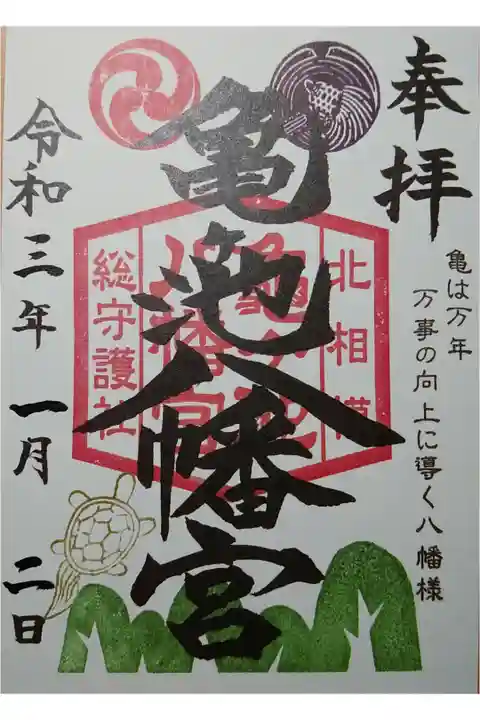 奉拝
亀は万年
万事の向上に導く八幡様
亀池八幡宮
北相模
亀の池
八幡宮
総守護社
令和三年一月二日